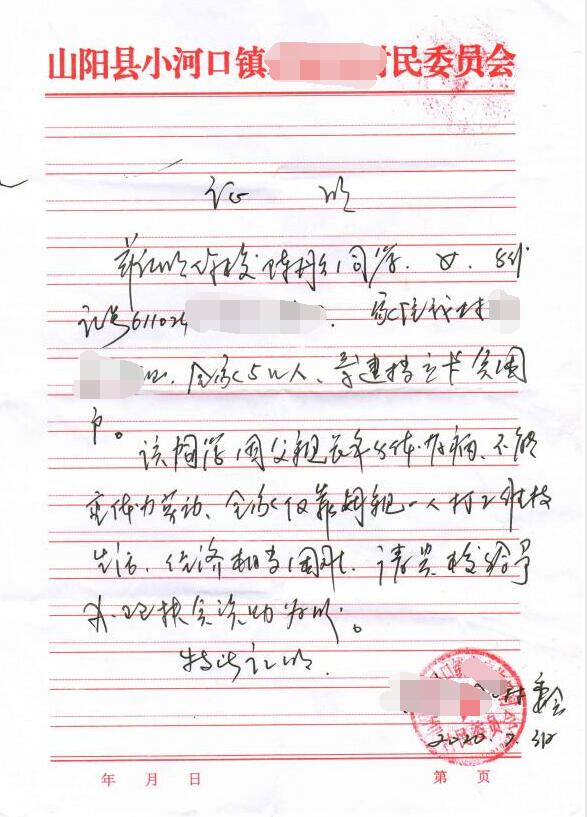 山阳县小河口镇 村民委员会
证 明
兹证明你校陈 同学、女、身份
证号611024 . 家住我村
组、全家5口人、系建档立卡贫困
户。
该同学因父亲长年身体有病、不能
重体力劳动、全家仅靠母亲一人打工维持
生活、经济相当困难、请贵校给予
办理扶贫资助为盼。
特此证明.
村委会
2020.
年 月 日 第 页